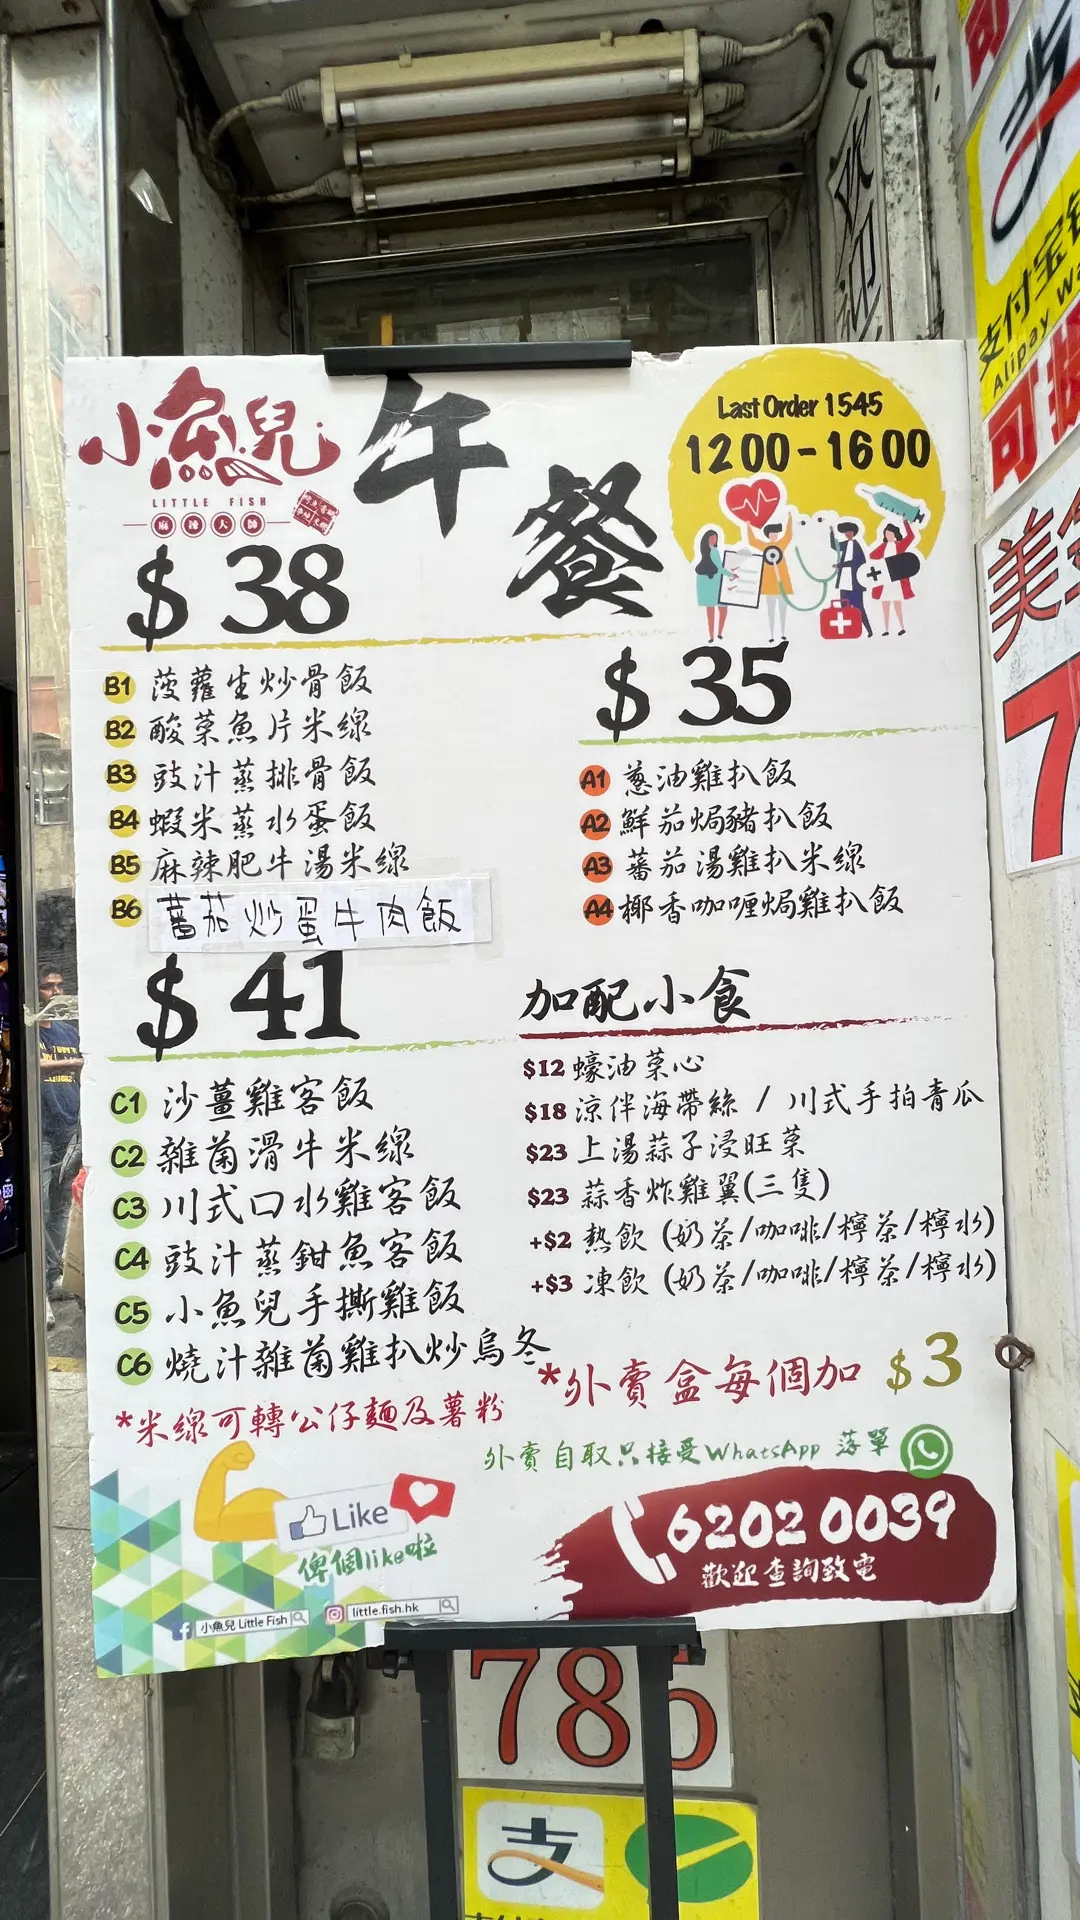 小魚兒
LITTLE FISH
麻辣大師
午餐
Last Order 1545
1200-1600
$38
B1 菠蘿生炒骨飯
B2 酸菜魚片米線
B3 豉汁蒸排骨飯
B4 蝦米蒸水蛋飯
B5 麻辣肥牛湯米線
B6 蕃茄炒蛋牛肉飯
$35
A1 蔥油雞扒飯
A2 鮮茄焗豬扒飯
A3 蕃茄湯雞扒米線
A4 椰香咖喱焗雞扒飯
$41
C1 沙薑雞客飯
C2 雜菌滑牛米線
C3 川式口水雞客飯
C4 豉汁蒸鉗魚客飯
C5 小魚兒手撕雞飯
C6 燒汁雜菌雞扒炒烏冬
*米線可轉公仔麵及薯粉
加配小食
$12 蠔油菜心
$18 涼伴海帶絲 / 川式手拍青瓜
$23 上湯蒜子浸旺菜
$23 蒜香炸雞翼(三隻)
+$2 熱飲 (奶茶/咖啡/檸茶/檸水)
+$3 凍飲 (奶茶/咖啡/檸茶/檸水)
*外賣盒每個加 $3
外賣自取只接受WhatsApp 落單
6202 0039
歡迎查詢致電
Like
俾個like啦
小魚兒 Little Fish
little.fish.hk
支付宝
Alipay
可
美
7
78
支